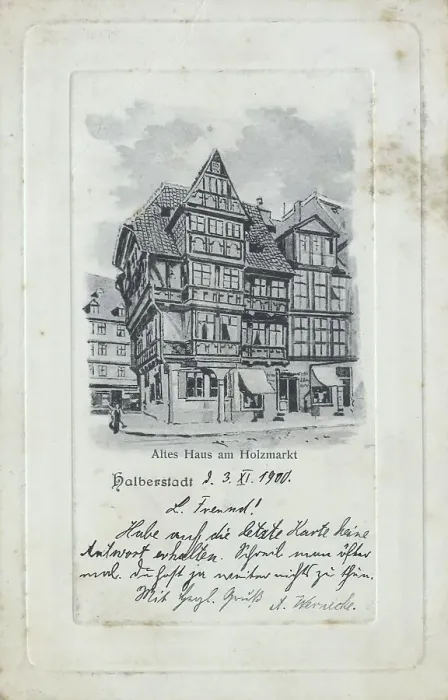 Altes Haus am Holzmarkt
Halberstadt d. 3. XI. 1900.
L. Freund!
Habe auf die letzte Karte keine
Antwort erhalten. Schreib man öfter
mal. Du hast ja weiter nichts zu thun.
Mit herzl. Gruß A. Wernecke.